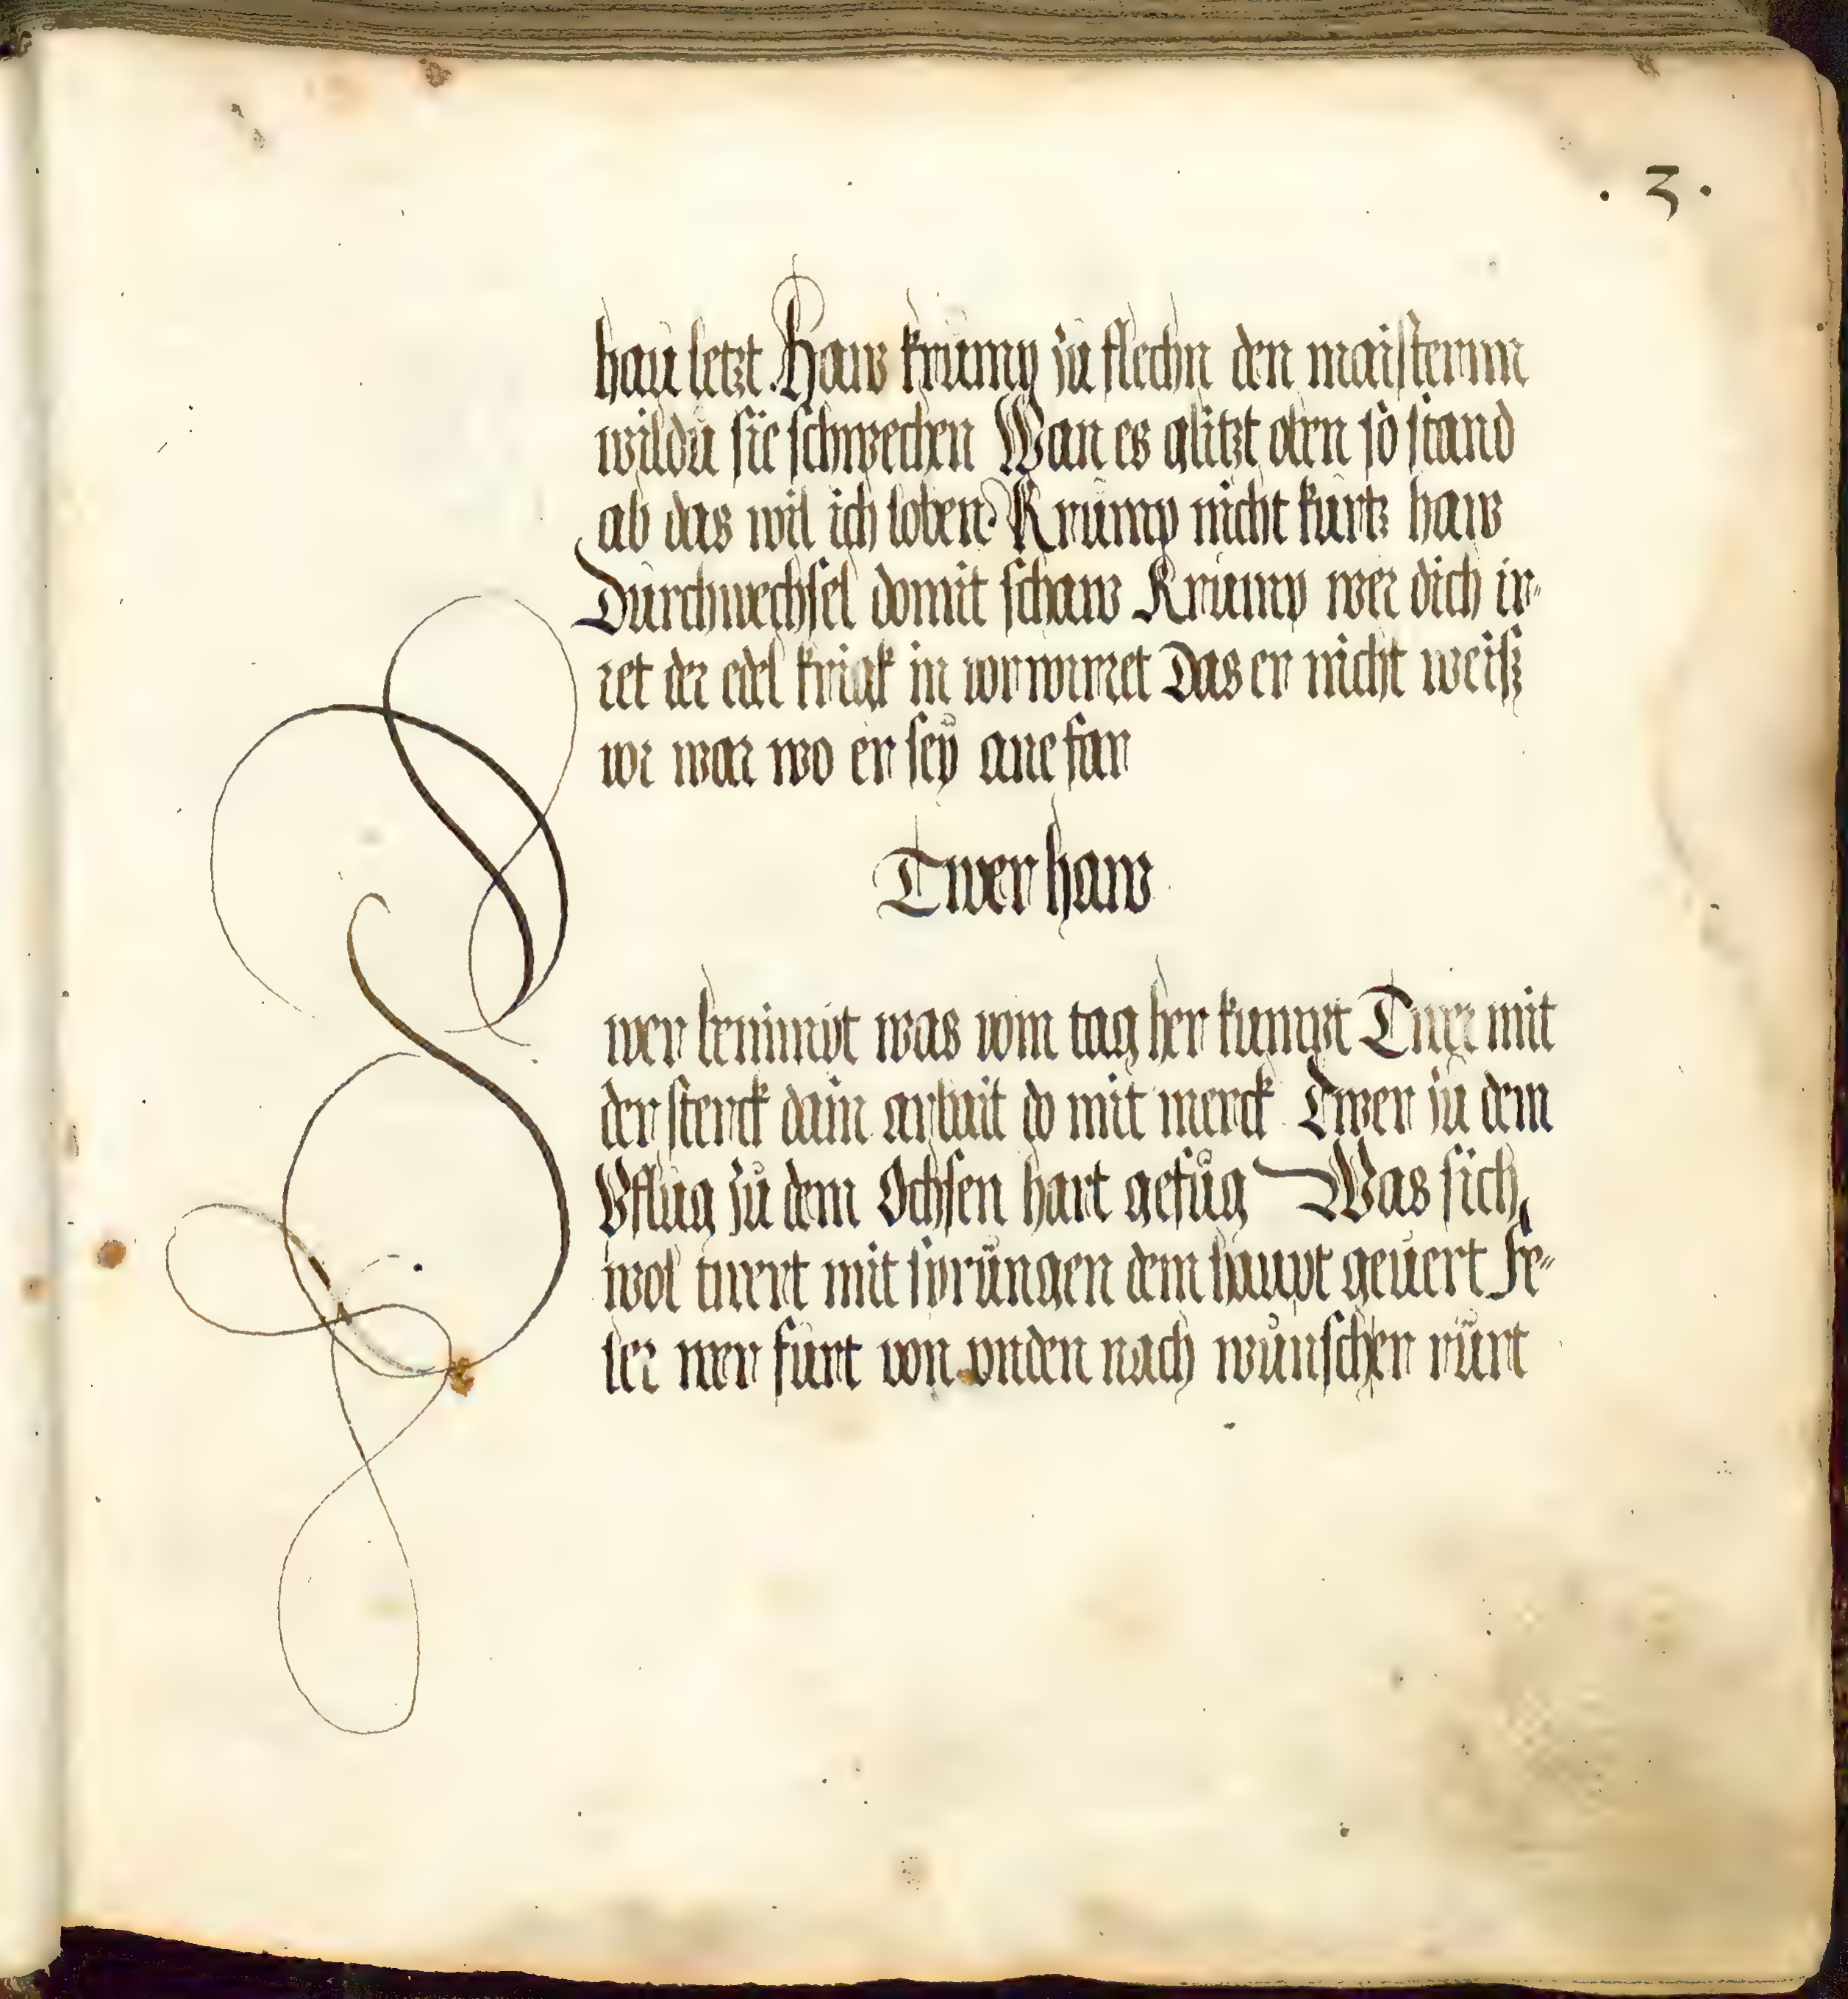 · 3 ·
hau setzt. Haw krump zu flechn den maisternn
wildu sie schwechen Wan es glitzt oben so stand
ab das wil ich loben Krump nicht kurtz haw
Durchwechsel domit schaw Krump wer dich ir⸗
ret der edel krigk in vorwirret Das er nicht weiß
vor war wo er sey ane far
Twer haw
wer benimpt was vom tag her kumpt Twer mit
der sterck dain arbait do mit merck Twer zu dem
Pflug zu dem Ochsen hart gefug Was sich
wol twert mit sprüngen dem haupt geuert Fe⸗
ler wer furt von vnden nach wunschen rürt